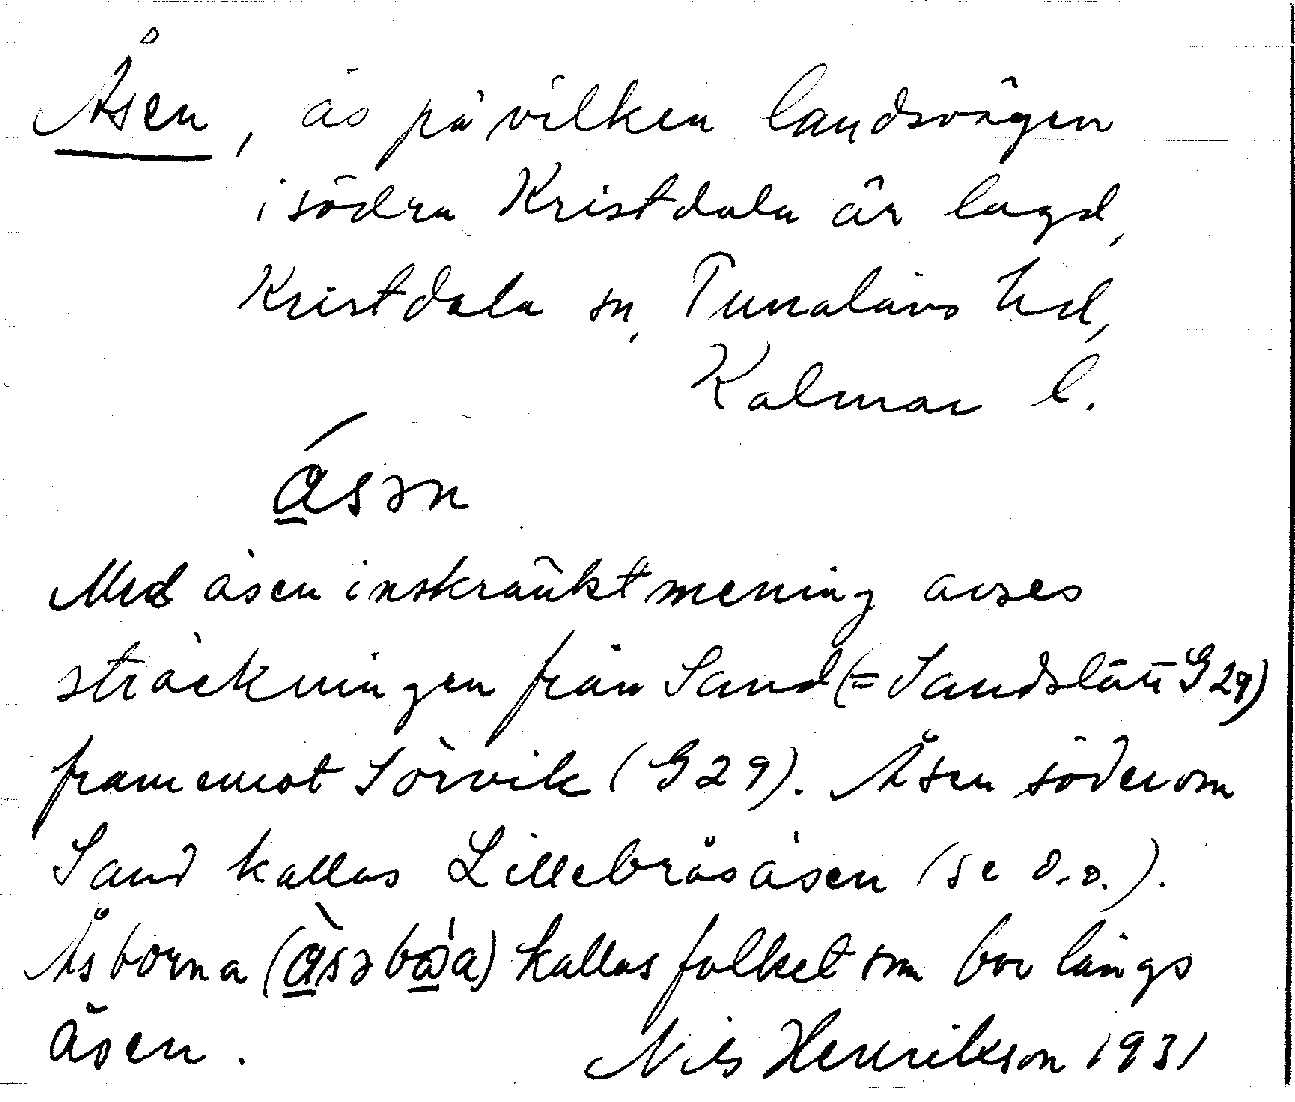 Åsen, ås på vilken landsvägen
i södra Kristdala är lagd,
Kristdala sn, Tunaläns hd,
Kalmar l.
ǻ̱sən
Med åsen i inskränkt mening avses
sträckningen från Sand (= Sandslätt G29)
framemot Sörvik (G29). Åsen söder om
Sand kallas Lillebråsåsen (se d.o.).
Åsborna (å̱̀səbω̱a) kallas folket som bor längs
åsen.
Nils Henrikson 1931